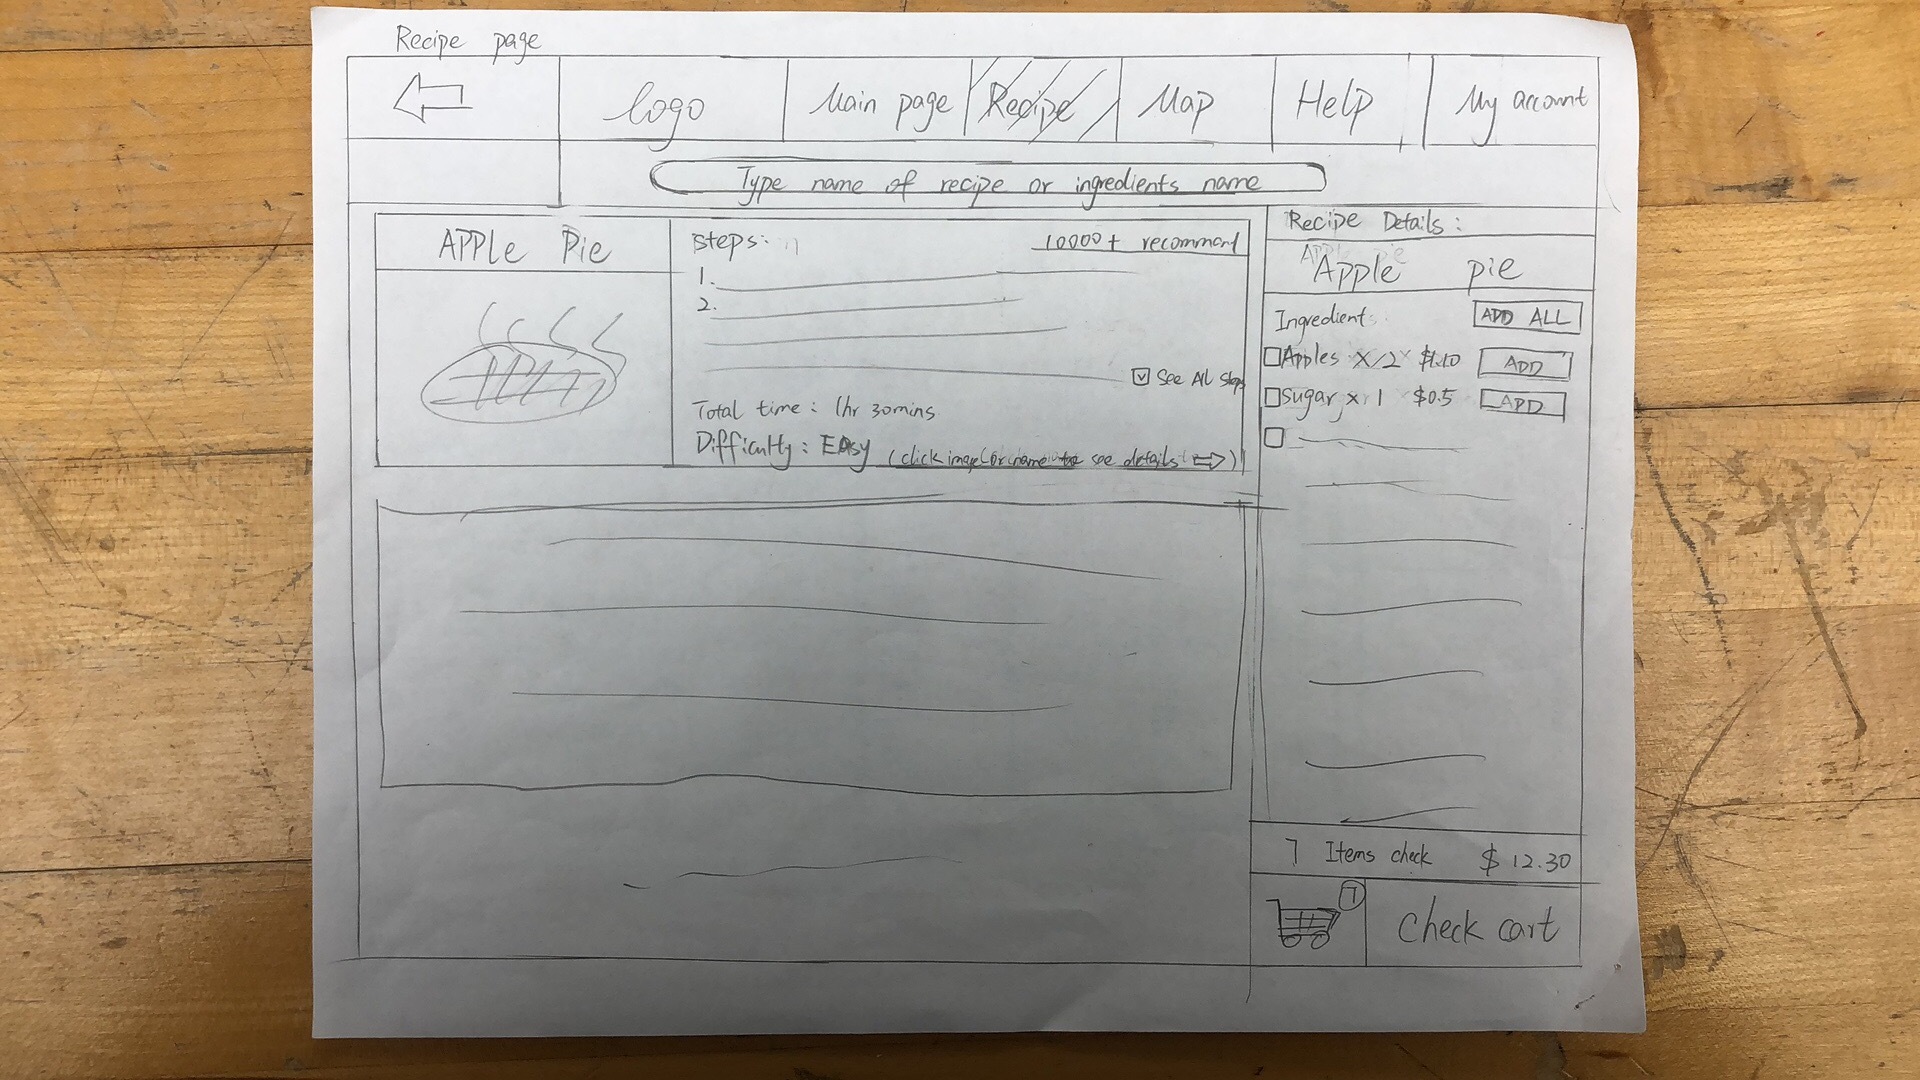 Recipe page
logo
Main page
Recipe
Map
Help
My account
Type name of recipe or ingredients name
APPle Pie
Steps:
10000+ recommend
1.
2.
See All Steps
Total time: 1hr 30mins
Difficulty: EAsy (click image or name to see details )
Recipe Details:
Apple pie
Ingredient
ADD ALL
Apples x 2 $1.10 ADD
Sugar x 1 $0.5 ADD
7 Items check $12.30
7
Check cart